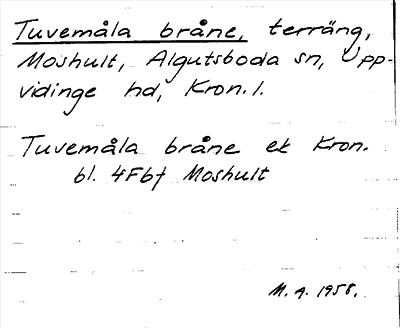 Tuvemåla bråne, terräng,
Moshult, Algutsboda sn, Upp-
vidinge hd, Kron. l.
Tuvemåla bråne ek Kron.
bl. 4Fbf Moshult
M. A. 1958.